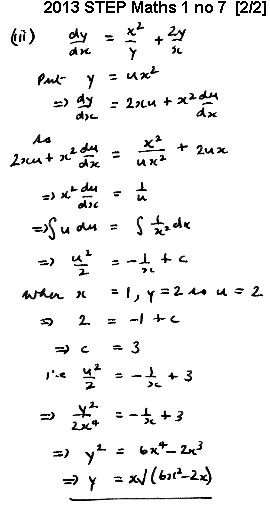 2013 STEP Maths 1 no 7 [2/2]
(iii) dy/dx = x²/y + 2y/x
Put y = ux²
⇒ dy/dx = 2xu + x² du/dx
so
2xu + x² du/dx = x²/ux² + 2ux
⇒ x² du/dx = 1/u
⇒ ∫u du = ∫ 1/x² dx
⇒ u²/2 = -1/x + c
when x = 1, y = 2 so u = 2
⇒ 2 = -1 + c
⇒ c = 3
i.e. u²/2 = -1/x + 3
⇒ y²/2x⁴ = -1/x + 3
⇒ y² = 6x⁴ - 2x³
⇒ y = x√(6x² - 2x)